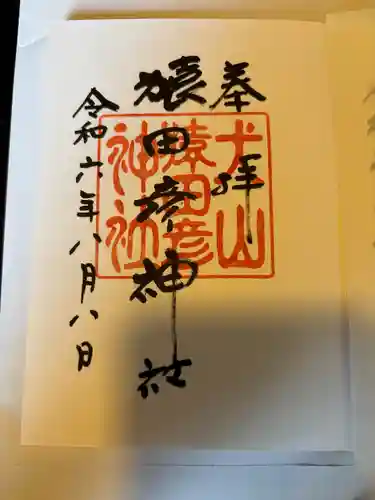 奉拝
犬山
猿田彦
神社
猿田彦神社
令和六年八月八日